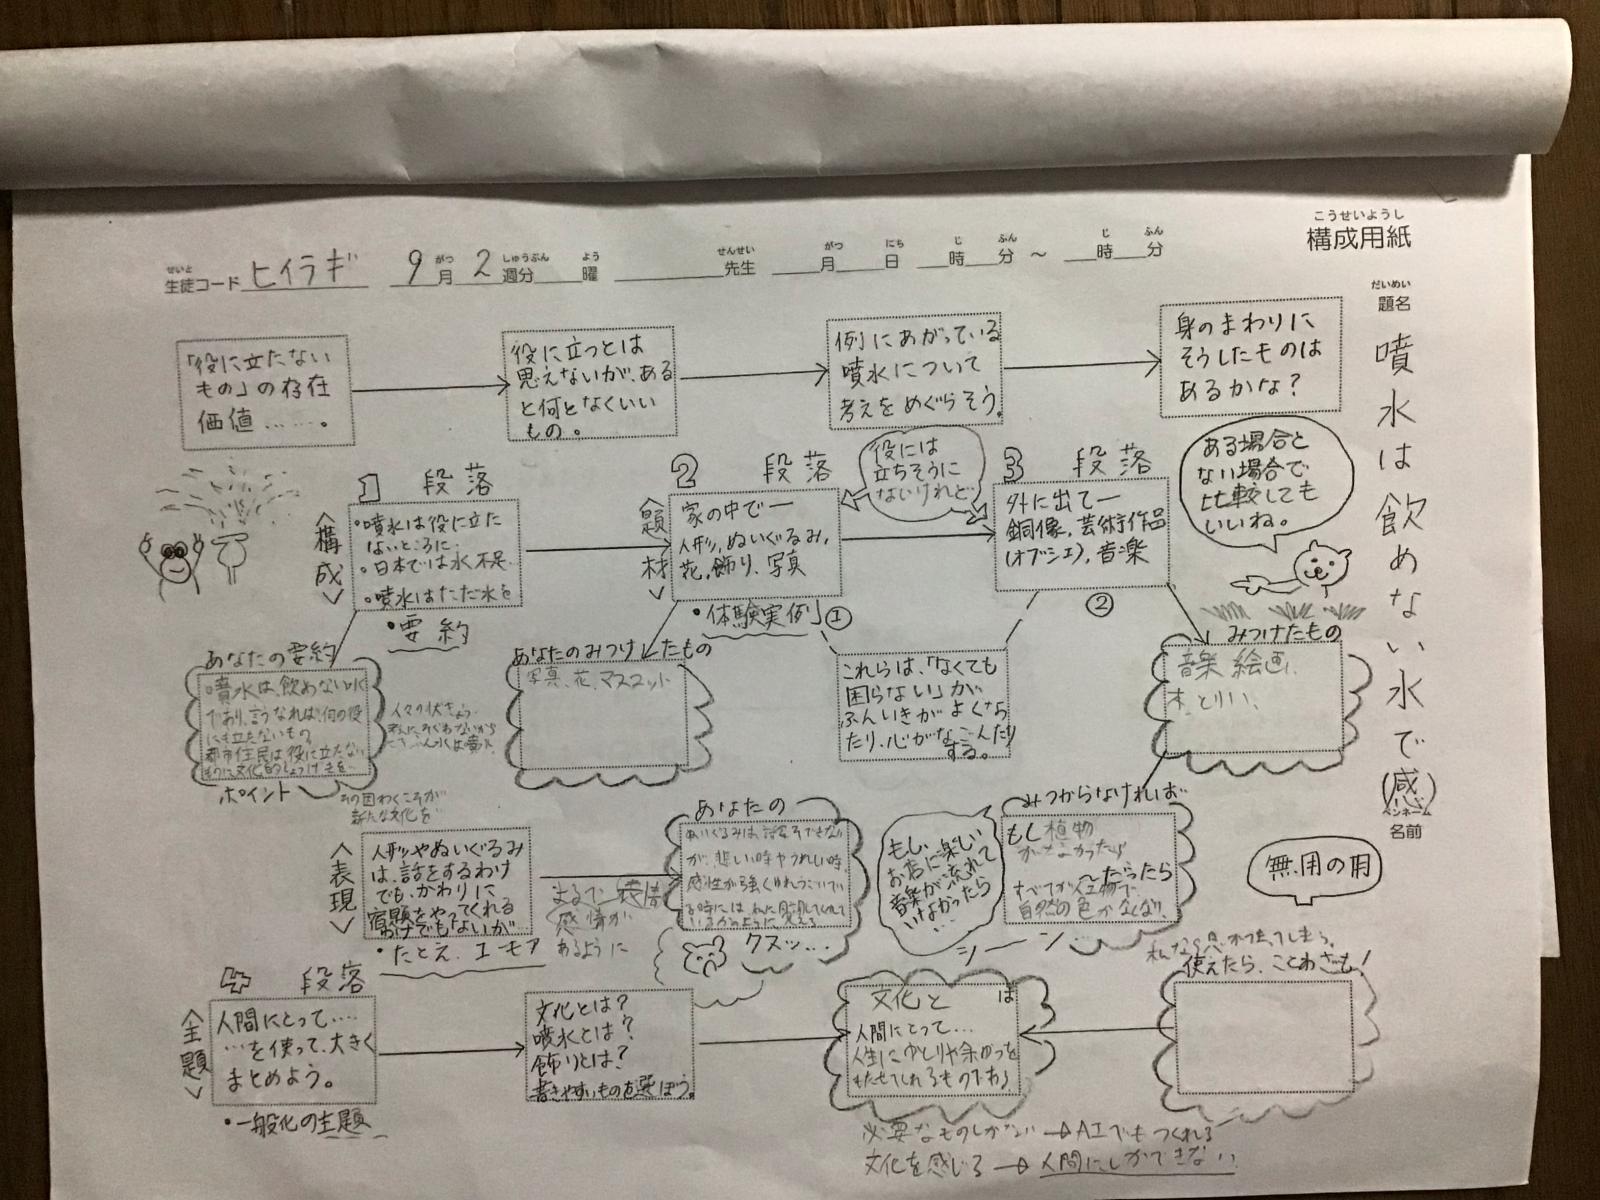 こうせいようし
構成用紙
せいと がつ しゅうぶん よう せんせい がつ にち じ ふん じ ふん
生徒コード ヒイラギ 9月 2週分 曜 先生 月 日 時 分 ～ 時 分
だいめい
題名
噴水は飲めない水で(感)
ペンネーム
名前
「役に立たない
もの」の存在
価値……。
役に立つとは
思えないが、ある
と何となくいい
もの。
例にあがっている
噴水について
考えをめぐらそう。
身のまわりに
そうしたものは
あるかな？
1 段落
〈構成〉
・噴水は役に立た
ないところに
・日本では水不足
・噴水はただ水を
・要約
2 段落
〈題材〉
家の中で一
人形、ぬいぐるみ、
花、飾り、写真
・体験実例」①
役には
立ちそうに
ないけれど
3 段落
外に出て一
銅像、芸術作品
(オブジェ)、音楽
②
ある場合と
ない場合で
比較しても
いいね。
あなたの要約
噴水は、飲めない水
であり、言うなれば、何の役
にも立たないもの
都市住民は、役に立たない
ポイント
新たな文化を
あなたのみつけたもの
写真、花、マスコット
これらは、「なくても
困らない」が、
ふんいきがよくなっ
たり、心がなごんだり
する。
みつけたもの
音楽 絵画、
木、とりい、
〈表現〉
人形やぬいぐるみ
は、話をするわけ
でも、かわりに
宿題をやってくれる
わけでもないが…
・たとえ、ユーモア
まるで表情
感情が
あるように
あなたの
ぬいぐるみは、話をできない
が、悲しい時やうれしい時、
クスッ…
もし、
お店に楽しい
音楽が流れて
いなかったら
…
シーン…
みつからなければ
もし植物
がなかったら
～だったら
すべてが人工物で、
自然の色がなくなり、
無用の用
使えたら、ことわざも！
4 段落
〈主題〉
人間にとって…
…を使って、大きく
まとめよう。
・一般化の主題
文化とは？
噴水とは？
飾りとは？
書きやすいものを選ぼう。
文化と は
人間にとって…
人生にゆとりや余かつを
もたせてくれるものであり
必要なものしかない → AIでもつくれる
文化を感じる → 人間にしかできない